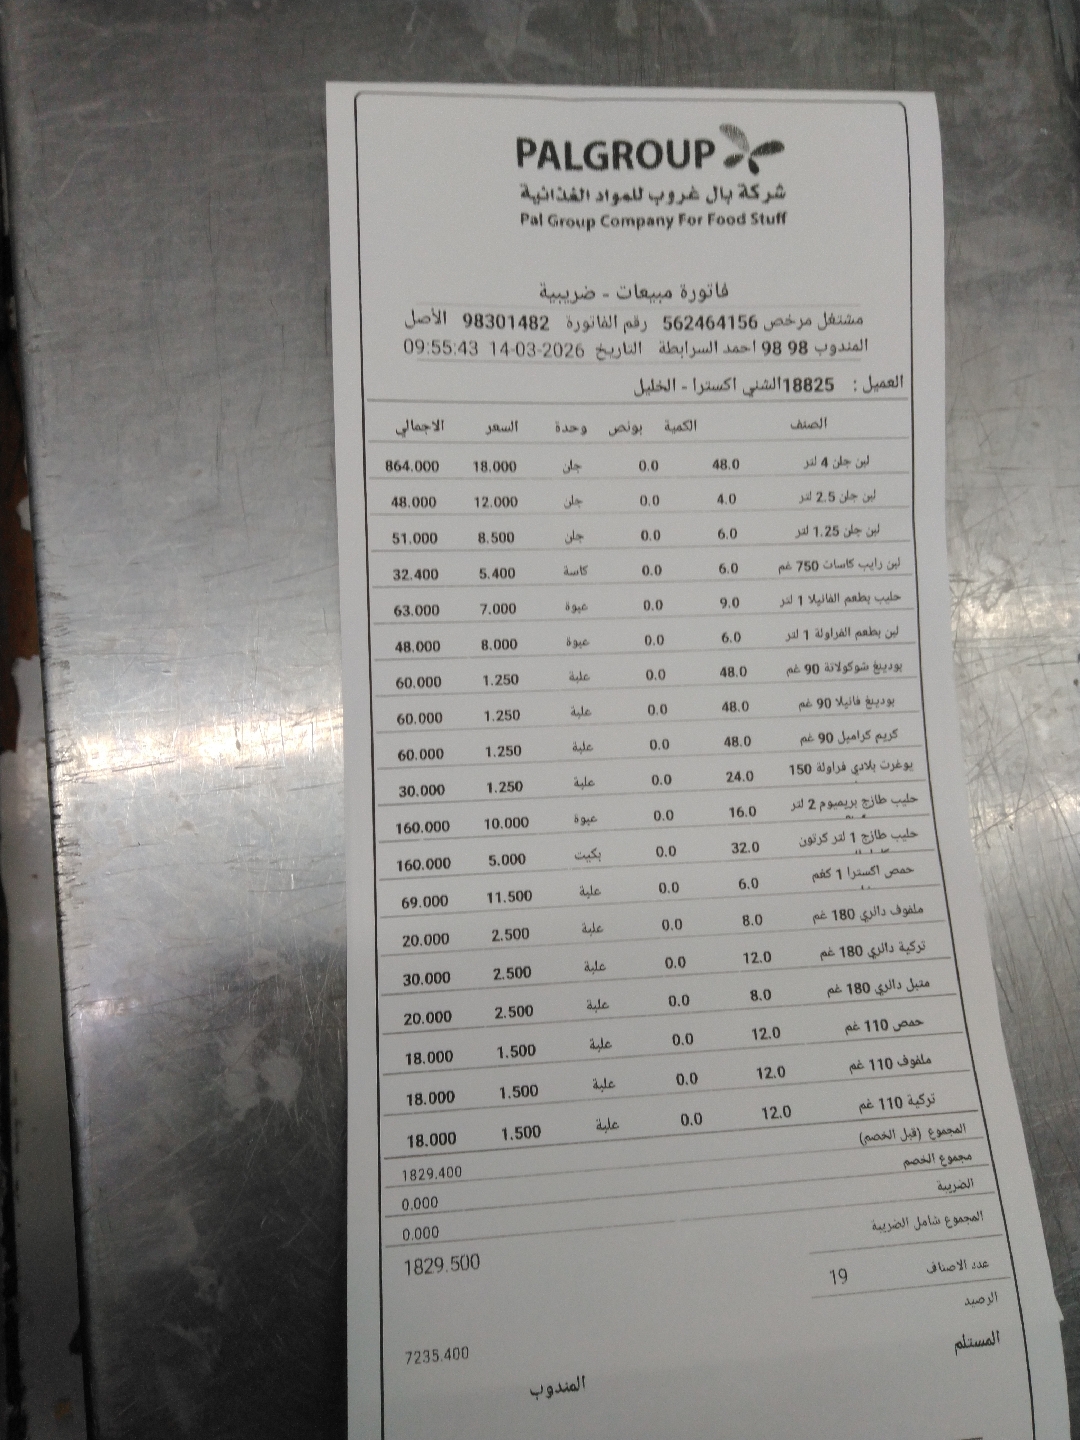 PALGROUP
شركة بال غروب للمواد الغذائية
Pal Group Company For Food Stuff
فاتورة مبيعات - ضريبية
مشتغل مرخص 562464156 رقم الفاتورة 98301482 الأصل
المندوب 98 98 احمد السرابطة التاريخ 14-03-2026 09:55:43
العميل : 18825الشني اكسترا - الخليل
الصنف الكمية بونص وحدة السعر الاجمالي
لبن جلن 4 لتر 48.0 0.0 جلن 18.000 864.000
لبن جلن 2.5 لتر 4.0 0.0 جلن 12.000 48.000
لبن جلن 1.25 لتر 6.0 0.0 جلن 8.500 51.000
لبن رايب كاسات 750 غم 6.0 0.0 كاسة 5.400 32.400
حليب بطعم الفانيلا 1 لتر 9.0 0.0 عبوة 7.000 63.000
لبن بطعم الفراولة 1 لتر 6.0 0.0 عبوة 8.000 48.000
بودينغ شوكولاتة 90 غم 48.0 0.0 علبة 1.250 60.000
بودينغ فانيلا 90 غم 48.0 0.0 علبة 1.250 60.000
كريم كراميل 90 غم 48.0 0.0 علبة 1.250 60.000
يوغرت بلادي فراولة 150 24.0 0.0 علبة 1.250 30.000
حليب طازج بريميوم 2 لتر 16.0 0.0 عبوة 10.000 160.000
حليب طازج 1 لتر كرتون 32.0 0.0 بكيت 5.000 160.000
حمص اكسترا 1 كغم 6.0 0.0 علبة 11.500 69.000
ملفوف دالري 180 غم 8.0 0.0 علبة 2.500 20.000
تركية دالري 180 غم 12.0 0.0 علبة 2.500 30.000
متبل دالري 180 غم 8.0 0.0 علبة 2.500 20.000
حمص 110 غم 12.0 0.0 علبة 1.500 18.000
ملفوف 110 غم 12.0 0.0 علبة 1.500 18.000
تركية 110 غم 12.0 0.0 علبة 1.500 18.000
المجموع (قبل الخصم) 1829.400
مجموع الخصم 0.000
الضريبة 0.000
المجموع شامل الضريبة 1829.500
عدد الاصناف 19
الرصيد 7235.400
المستلم المندوب